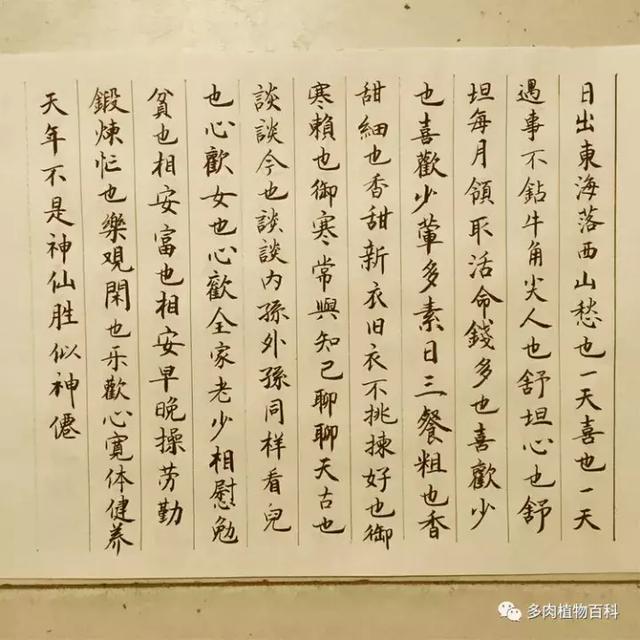 日出東海落西山愁也一天喜也一天
遇事不鉆牛角尖人也舒坦心也舒
坦每月領取活命錢多也喜歡少
也喜歡少葷多素日三餐粗也香
甜細也香甜新衣旧衣不挑揀好也御
寒賴也御寒常與知己聊聊天古也
談談今也談談内孫外孫同样看兒
也心歡女也心歡全家老少相慰勉
貧也相安富也相安早晚操劳勤
鍛煉忙也樂观閑也乐歡心寬体健养
天年不是神仙胜似神僊
多肉植物百科